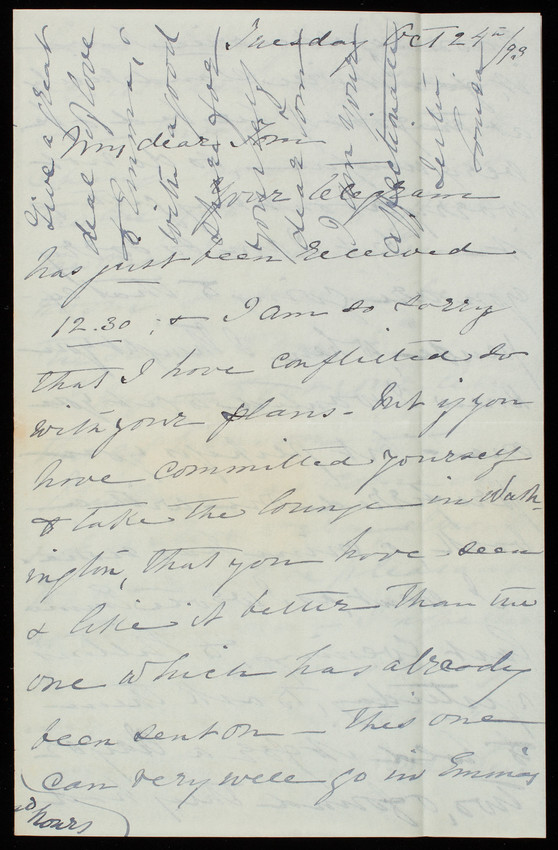 Tuesday Oct 24th/93
My dear Tom
Your telegram
has just been received
12.30; & I am so sorry
that I have conflicted so
with your plans - But if you
have committed yourself
& take the lounge in Wash-
ington, that you have seen
& like it better than the
one which has already
been sent on - this one
can very well go in Emma's
hours
Give a great
deal of love
to Emma,
with a good
share for
yourself
dear Tom
I am your
affectionate
sister
Louisa